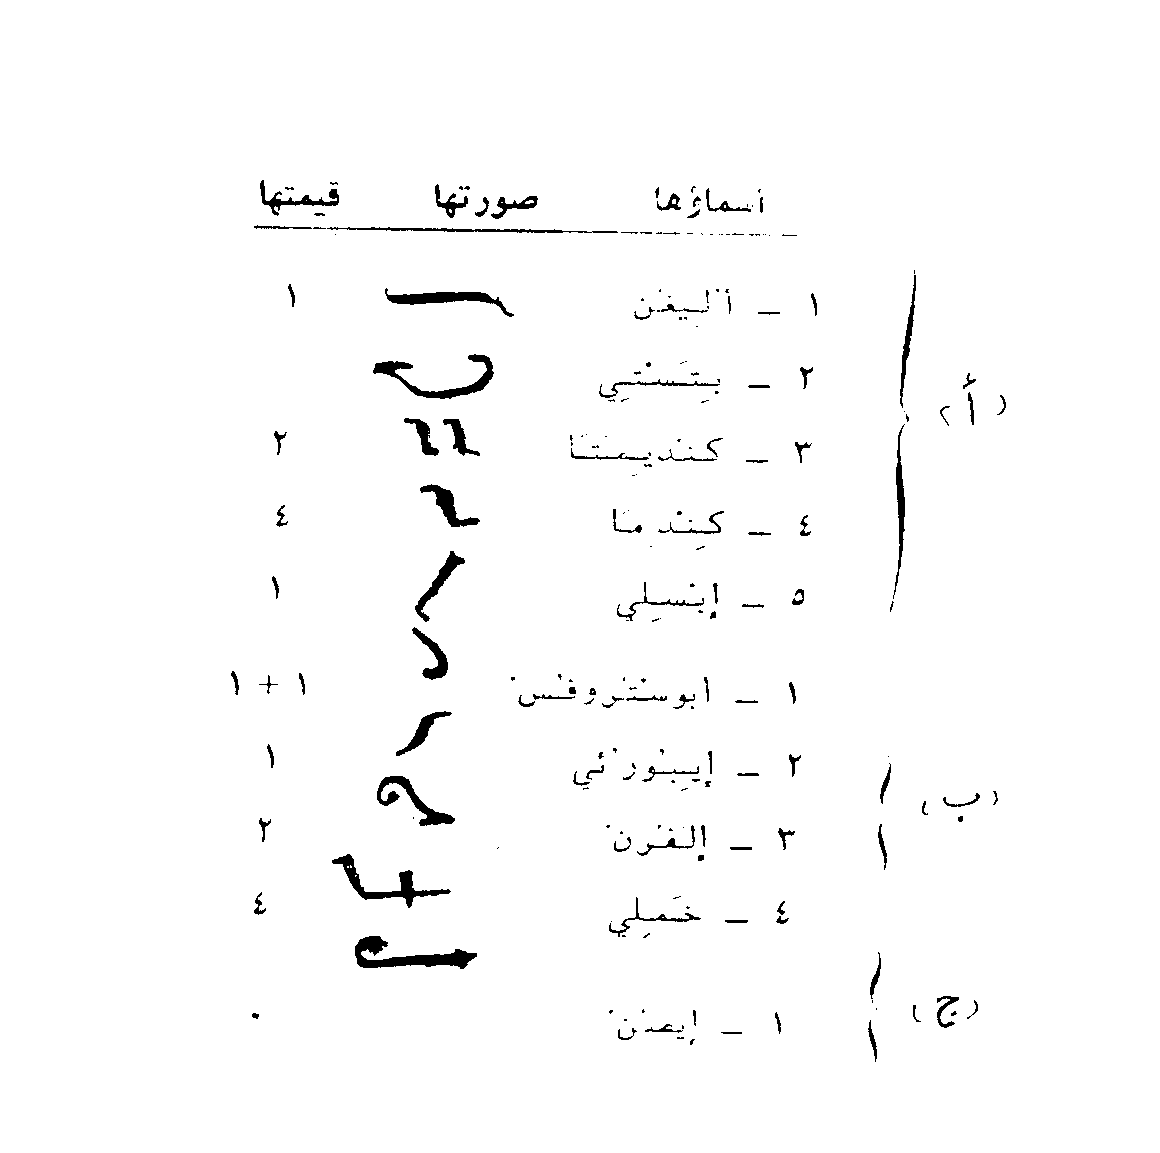 أسماؤها صورتها قيمتها
١ – أليغن ١
٢ – بِتَسْتِي
(أ)
٣ – كنديمتا ٢
٤ – كِنْدِمَا ٤
٥ – إبْسِلِي ١
١ – أبوستروفس ١ + ١
٢ – إيبورئي ١
(ب)
٣ – إلفرن ٢
٤ – خَمِلِي ٤
(ج)
١ – إيصنن ٠